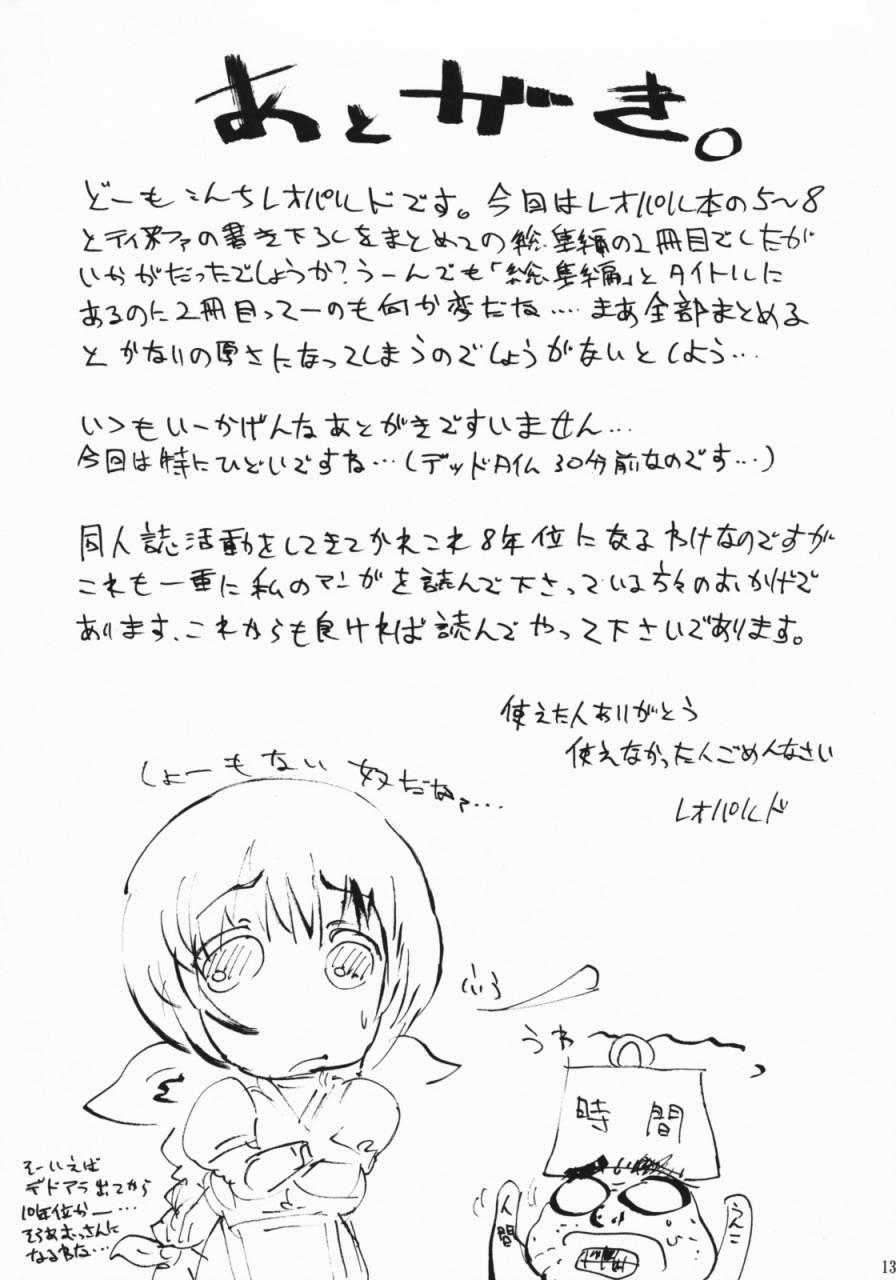 あとがき。
どーもこんちレオパルドです。今回はレオパル本の5〜8
とティファの書き下ろしをまとめての総集編の2冊目でしたが
いかがだったでしょうか?うーんでも「総集編」とタイトルに
あるのに2冊目ってーのも何か変だな…. まあ全部まとめる
と かなりの厚さになってしまうのでしょうがないとしよう…
いつもいーかげんなあとがきですいません…
今回は特にひどいですね…(デッドタイム 30分前なのです…)
同人誌活動をしてきてかれこれ8年位になるわけなのですが
これも一重に私のマンガを読んで下さっている方々のおかげで
あります、これからも良ければ読んでやって下さいであります。
使えた人ありがとう
使えなかった人ごめんなさい
レオパルド
しょーもない奴だなァ…
ふう
うわ
時間
人間
そーいえば
デドアラ出てから
10年位か…
になる
13